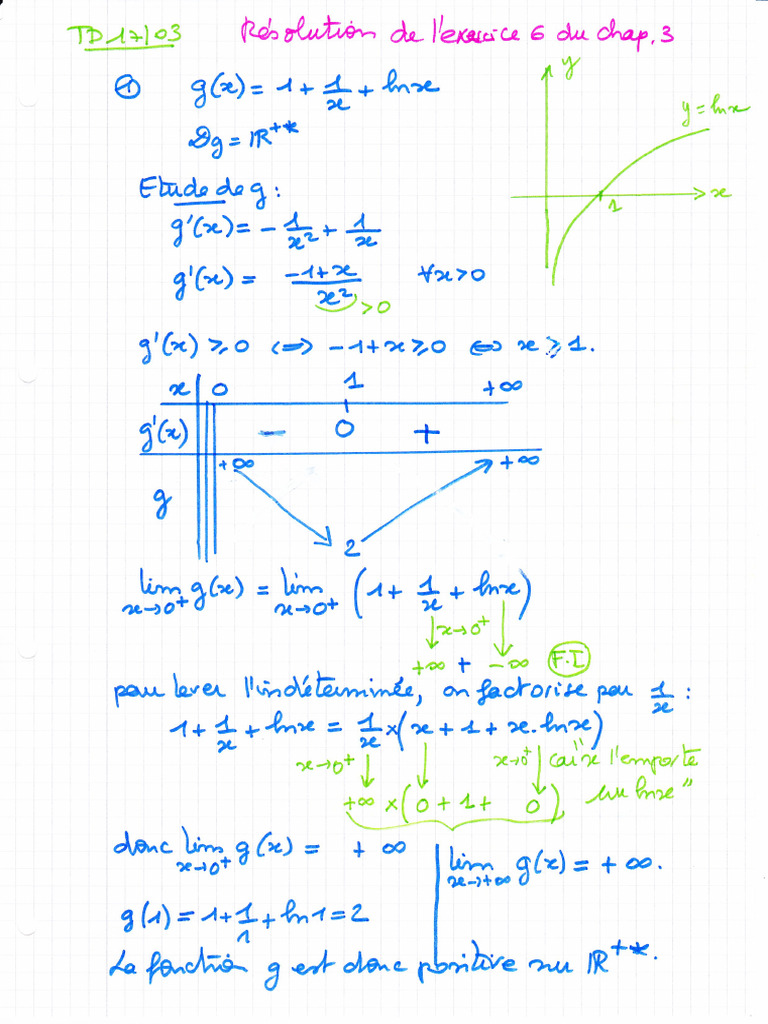 TD 17/03 Résolution de l'exercice 6 du chap. 3
① g(x) = 1 + 1/x + ln x
y
y = ln x
x
1
Dg = ℝ⁺*
Etude de g :
g'(x) = - 1/x² + 1/x
g'(x) = (-1+x)/x² ∀x>0
>0
g'(x) ⩾ 0 ⟺ -1+x ⩾ 0 ⟺ x ⩾ 1.
x 0 1 +∞
g'(x) - 0 +
+∞ +∞
g
2
lim x→0⁺ g(x) = lim x→0⁺ (1 + 1/x + ln x)
x→0⁺
+∞ + -∞ F.I
pour lever l'indéterminée, on factorise par 1/x :
1 + 1/x + ln x = 1/x × (x + 1 + x.ln x)
x→0⁺ x→0⁺ car "x l'emporte
+∞ × (0 + 1 + 0) sur ln x"
donc lim x→0⁺ g(x) = +∞
lim x→+∞ g(x) = +∞.
g(1) = 1 + 1/1 + ln 1 = 2
La fonction g est donc positive sur ℝ⁺*.